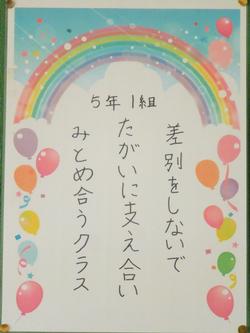 5年1組
差別をしないで
たがいに支え合い
みとめ合うクラス